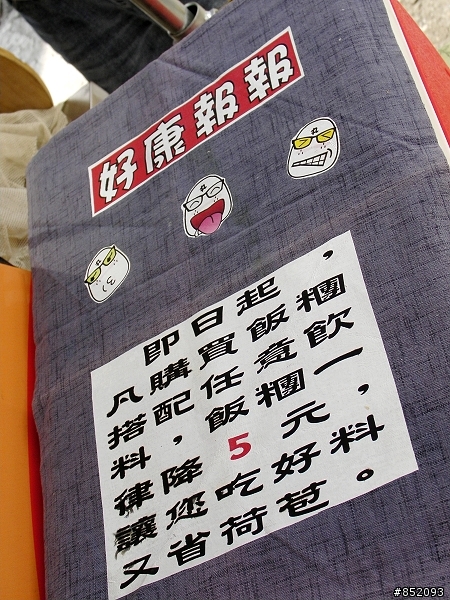 好康報報
即日起，
凡購買飯糰
搭配任意飲
料，飯糰一
律降5元，
讓您吃好料
又省荷苞。
#852093